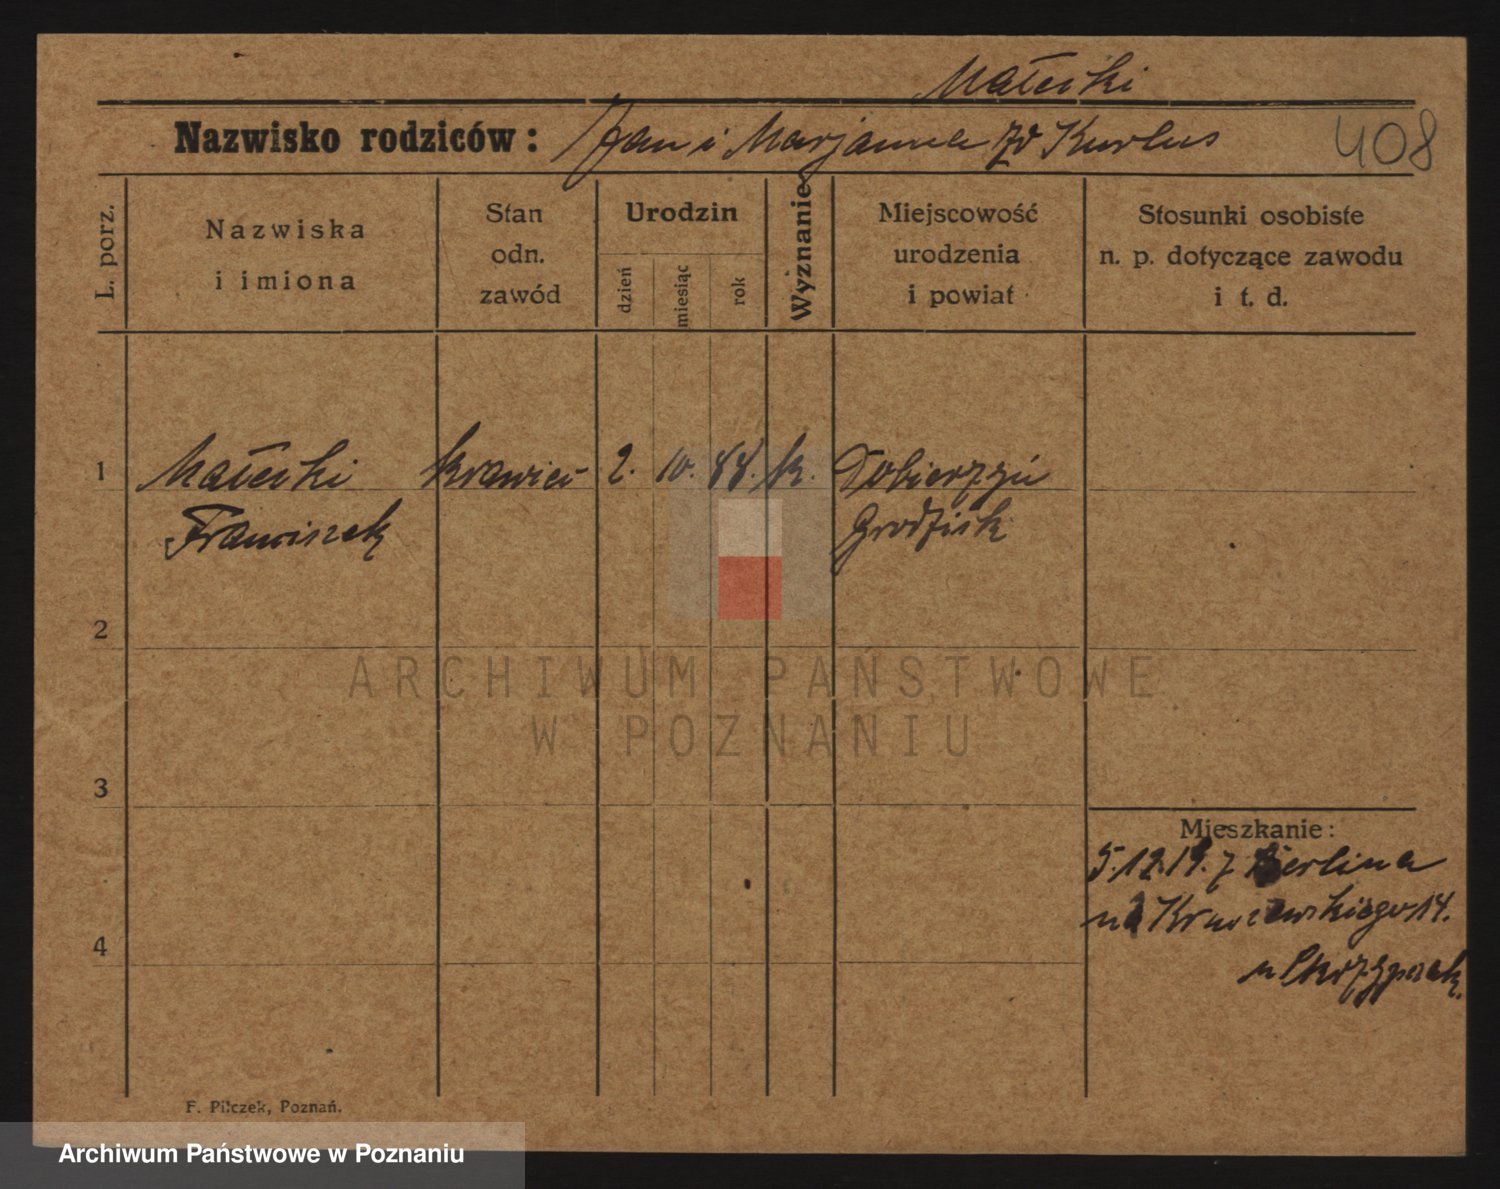 Małecki
Nazwisko rodziców: Jan i Marjanna zd Kurlus
408
L. porz.
Nazwiska
i imiona
Stan
odn.
zawód
Urodzin
dzień
miesiąc
rok
Wyznanie
Miejscowość
urodzenia
i powiat
Stosunki osobiste
n. p. dotyczące zawodu
i t. d.
1 Małecki krawiec 2. 10. 88. k.
Franciszek Grodzisk
2
3
4
Mieszkanie:
5.12.19. z Berlina
14.
u
F. Pilczek, Poznań.
ARCHIWUM PAŃSTWOWE
W POZNANIU
Archiwum Państwowe w Poznaniu